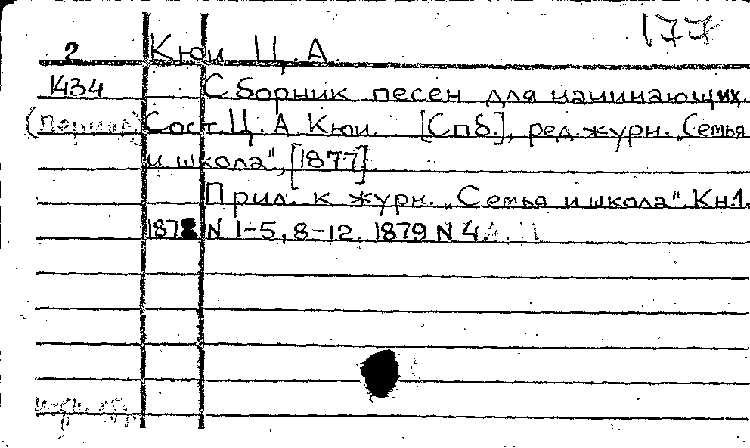 177
2 Кюи Ц. А.
1434 Сборник песен для начинающих.
(период) Сост. Ц. А. Кюи. [Спб.], ред. журн. „Семья
и школа", [1877]
Прил. к журн. „Семья и школа" Кн.1.
1878 N 1-5, 8-12, 1879 N 4